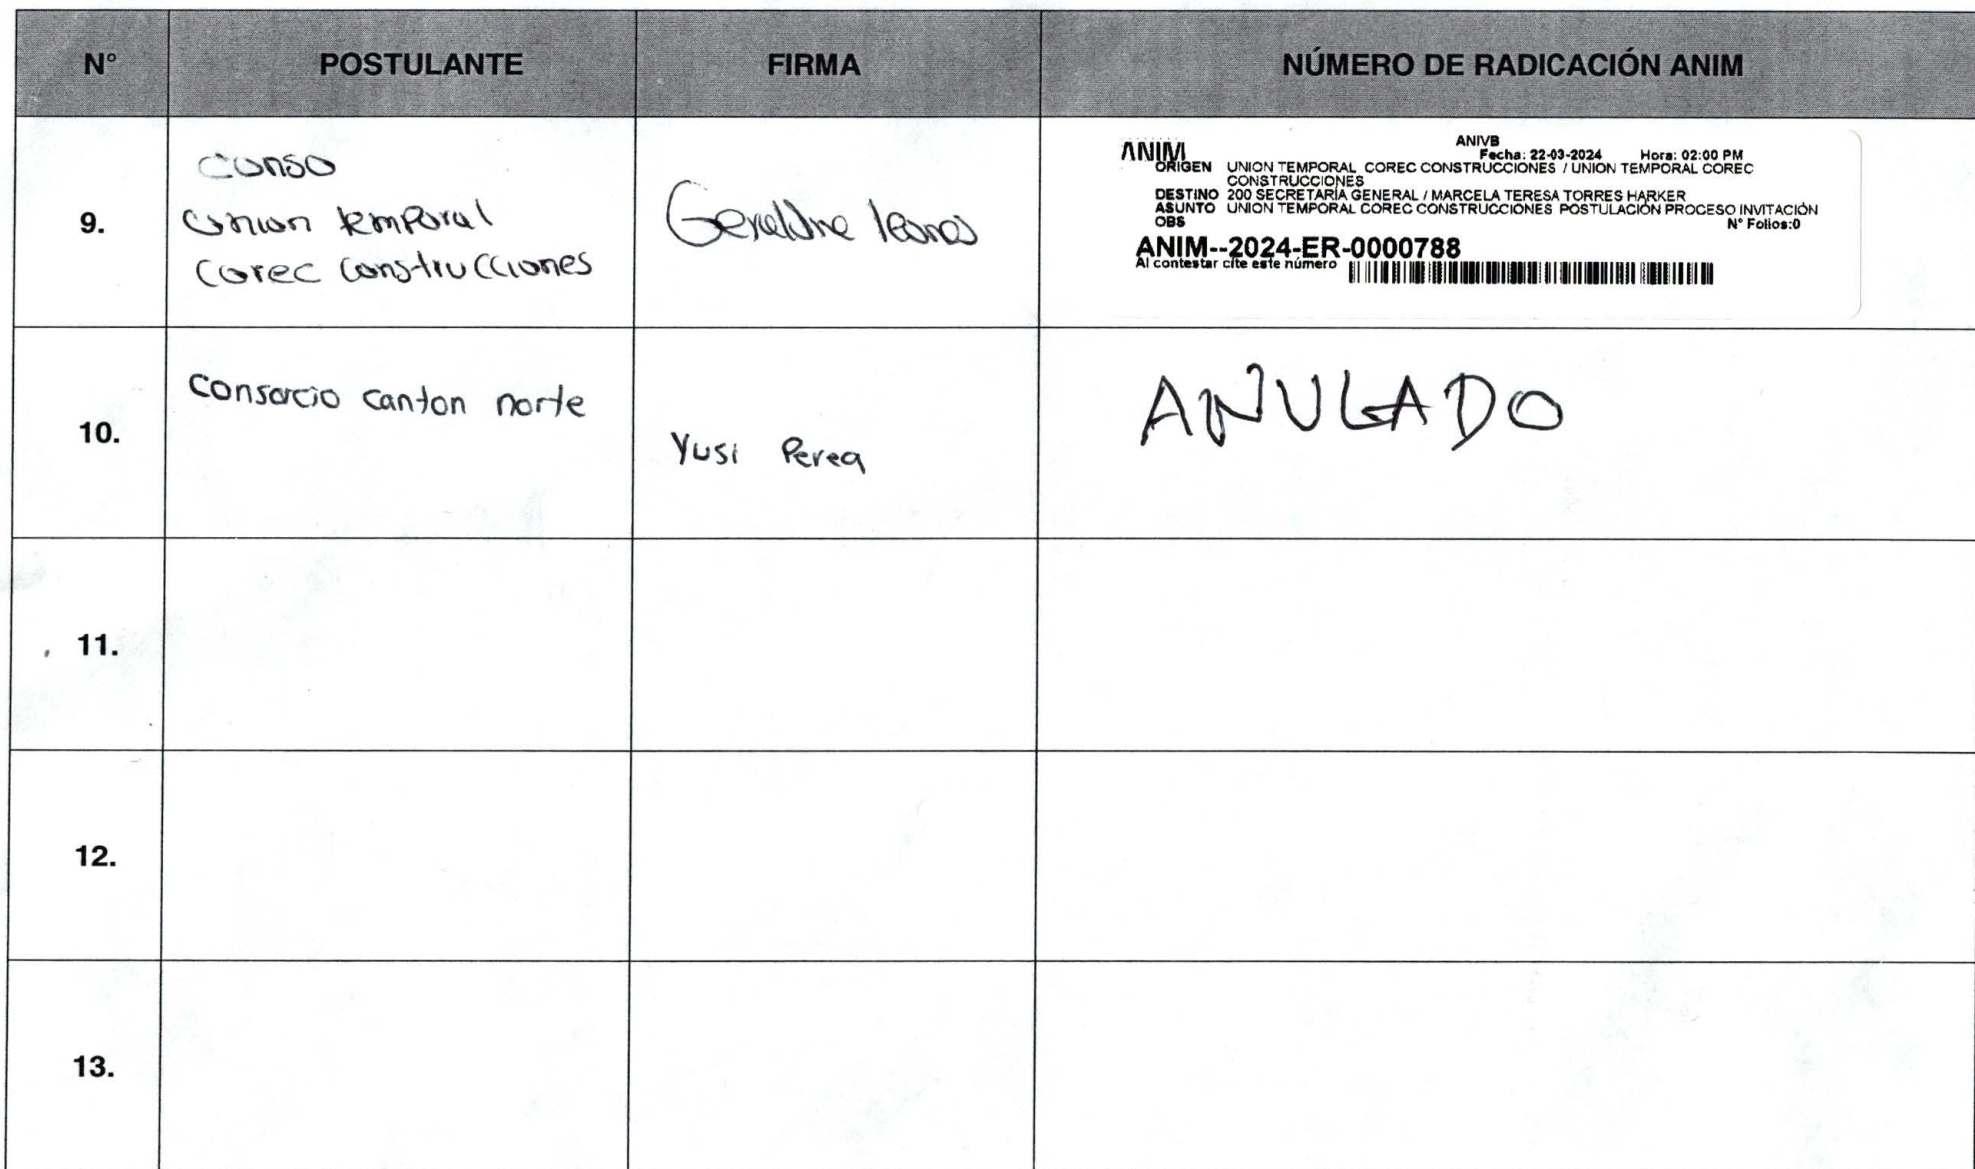 N° POSTULANTE FIRMA NÚMERO DE RADICACIÓN ANIM
9.
Conso
Union temporal
Corec Construcciones
Geraldine
ANIM
ANIVB
Fecha: 22-03-2024 Hora: 02:00 PM
ORIGEN UNION TEMPORAL COREC CONSTRUCCIONES / UNION TEMPORAL COREC
CONSTRUCCIONES
DESTINO 200 SECRETARÍA GENERAL / MARCELA TERESA TORRES HARKER
ASUNTO UNION TEMPORAL COREC CONSTRUCCIONES POSTULACIÓN PROCESO INVITACIÓN
OBS N° Folios:0
ANIM--2024-ER-0000788
Al contestar cite este número
10.
Consorcio canton norte
Yusi Perea
ANULADO
11.
12.
13.